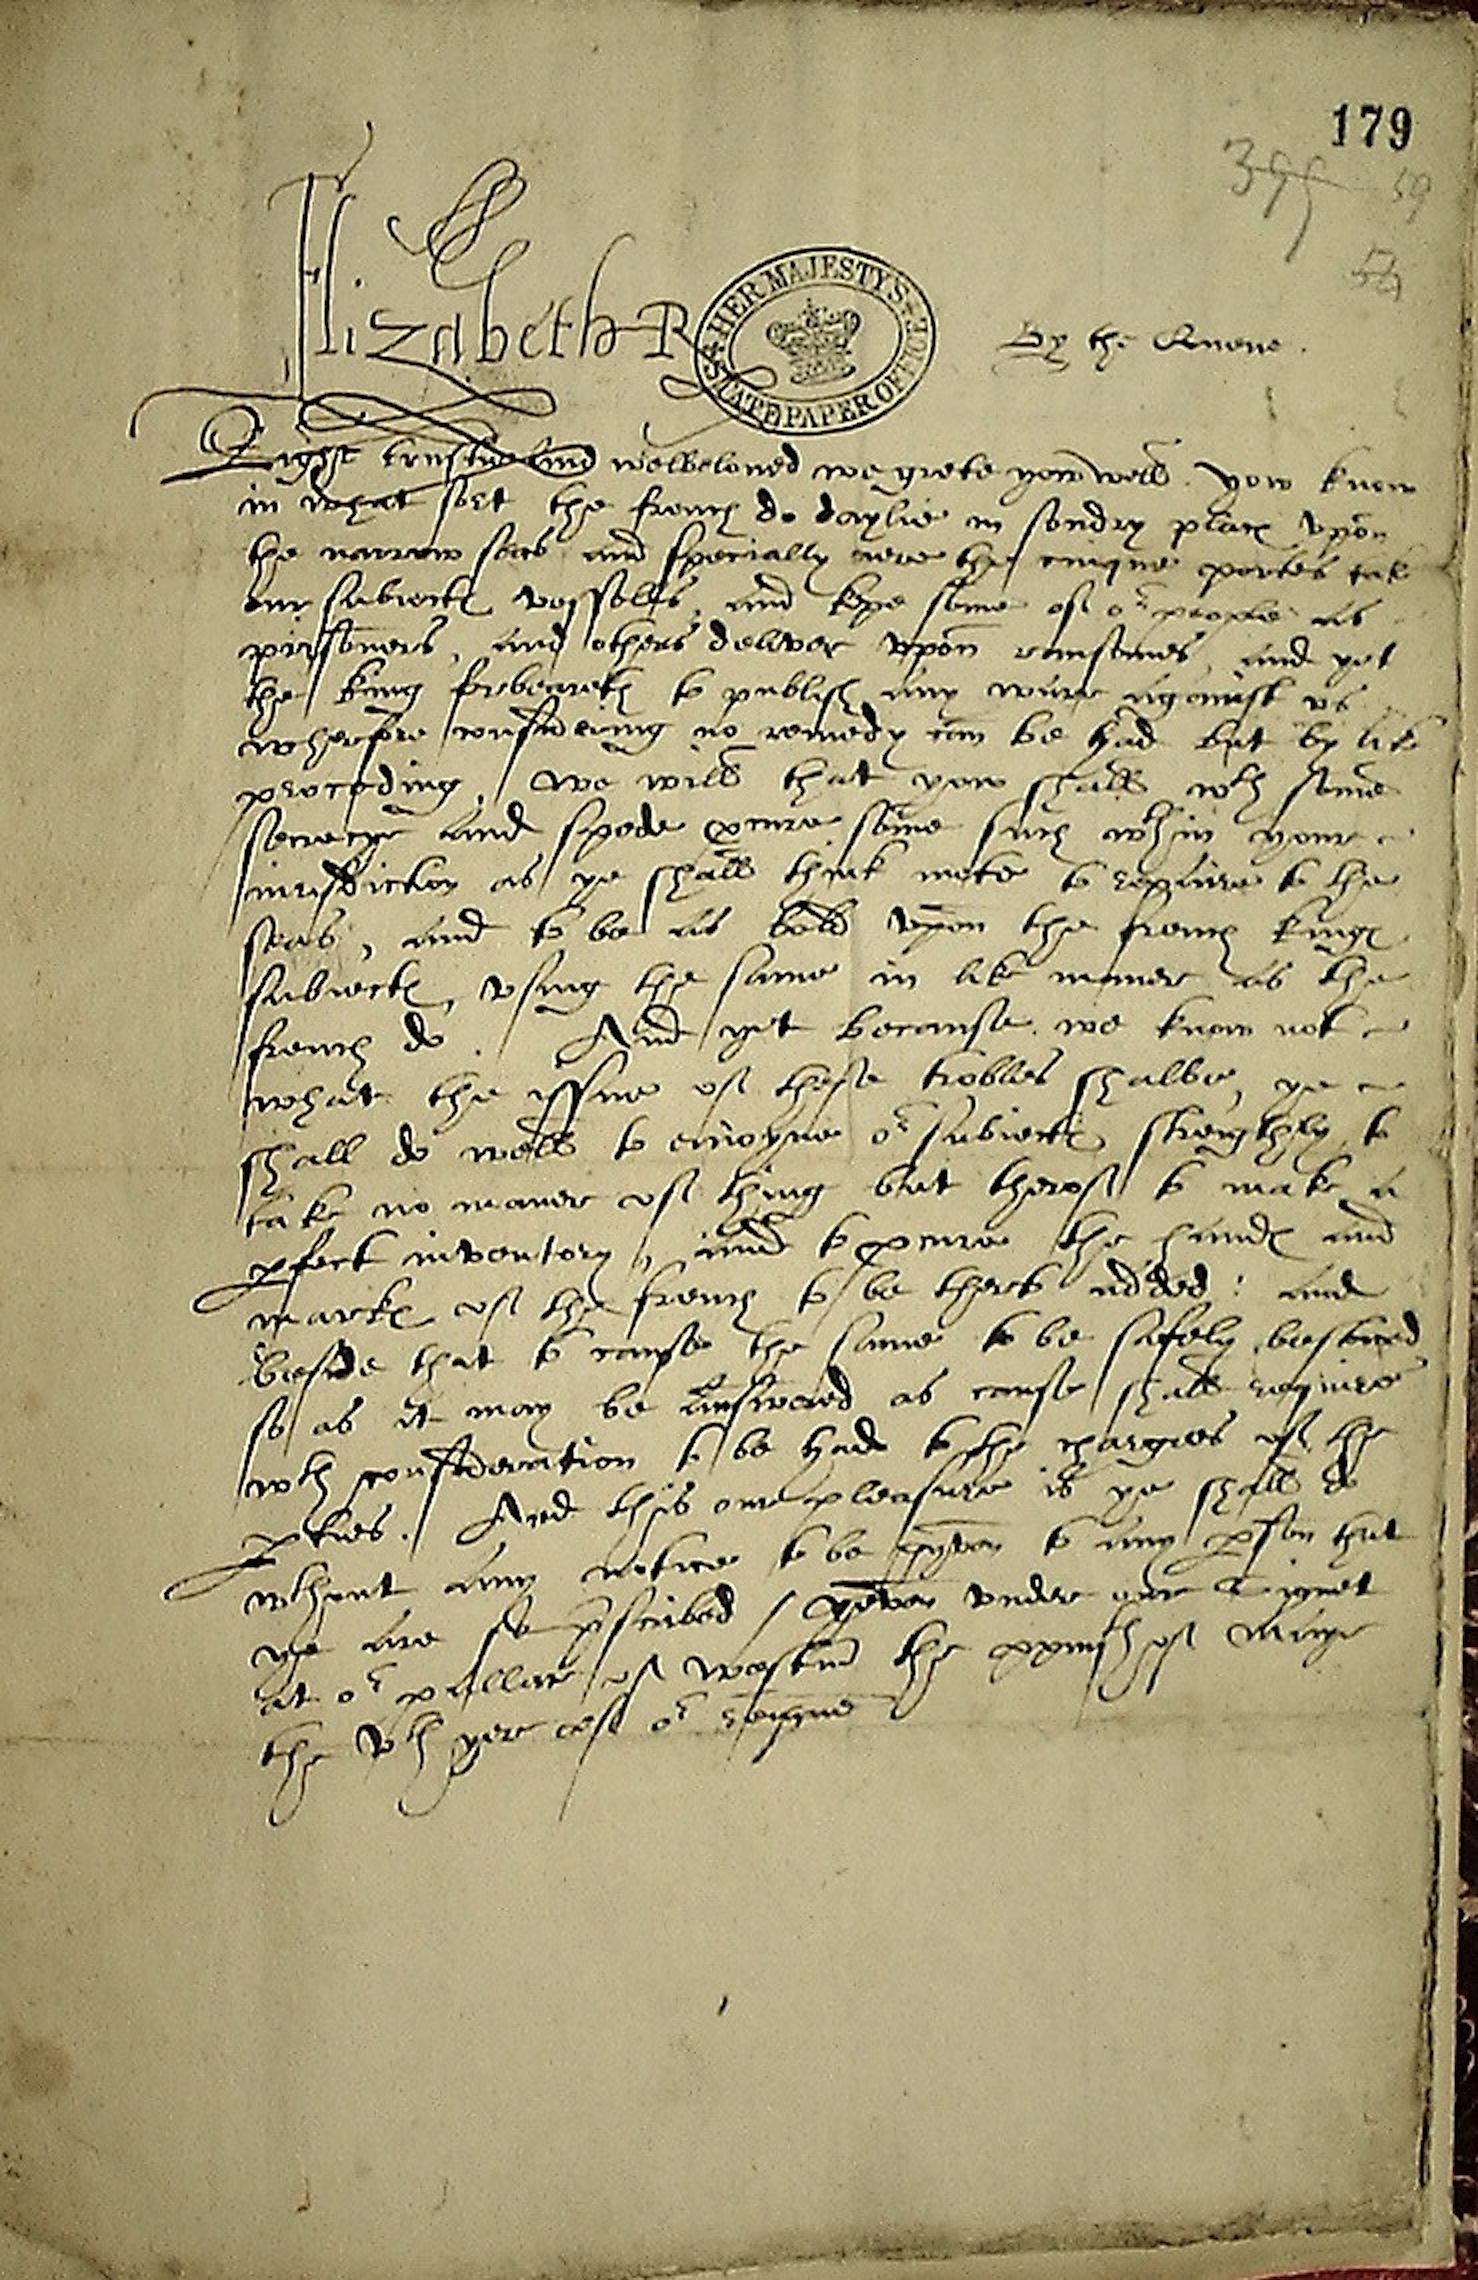 179
399 59
54
Elizabeth R
HER MAJESTY'S STATE PAPER OFFICE
By the Quene.
Right trustie and welbeloved we grete yow well. yow know
in what sort the french do daylie in sondry places vpon
the narrow seas and specially nere the cinque portes take
our subiectes vessells, and kepe some of or people as
prisoners, and others deliver vpon ransomes, and yet
the king forbeareth to publish any warre against vs
wherfore considering no remedy can be had but by like
proceding, we will that yow shall wth some
secrecye and spede procure some such wthin your
iurisdiction as ye shall think mete to repaire to the
seas, and to be as bold vpon the french kinges
subiectes, vsing the same in like maner as the
french do. And yet because we know not
what the yssue of these trobles shalbe, ye
shall do well to enioyne or subiectes streigthly to
take no maner of thing but therof to make a
pfect inventory, and to procure the handes and
markes of the french to be therto added: and
beside that to cause the same to be safely bestowed
so as it may be answered as cause shall require
wth consideration to be had to the chargies of the
pties. And this our pleasure is ye shall do
wthout any notice to be gyven to any pson that
ye are so prescribed / Yeven vnder our Signet
at or pallace of westm the xxvjth of Maye
the vth yere of or reigne